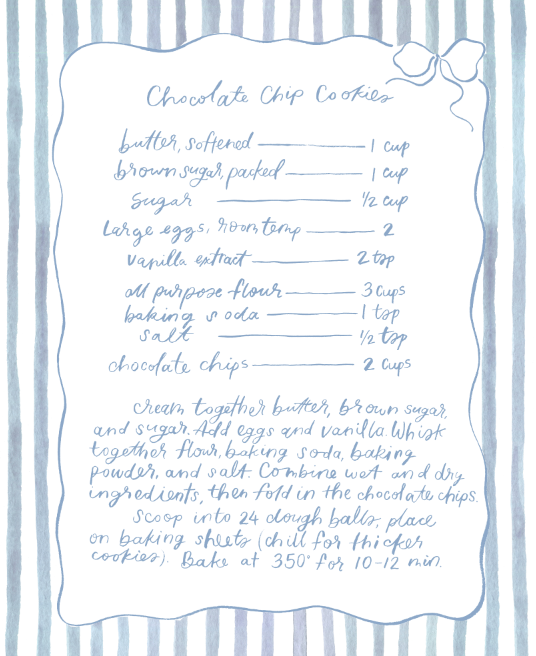 Chocolate Chip Cookies
butter, softened 1 cup
brown sugar, packed 1 cup
sugar 1/2 cup
Large eggs, room temp 2
vanilla extract 2 tsp
all purpose flour 3 cups
baking soda 1 tsp
salt 1/2 tsp
chocolate chips 2 cups
cream together butter, brown sugar,
and sugar. Add eggs and vanilla. Whisk
together flour, baking soda, baking
powder, and salt. Combine wet and dry
ingredients, then fold in the chocolate chips.
Scoop into 24 dough balls, place
on baking sheets (chill for thicker
cookies). Bake at 350° for 10-12 min.